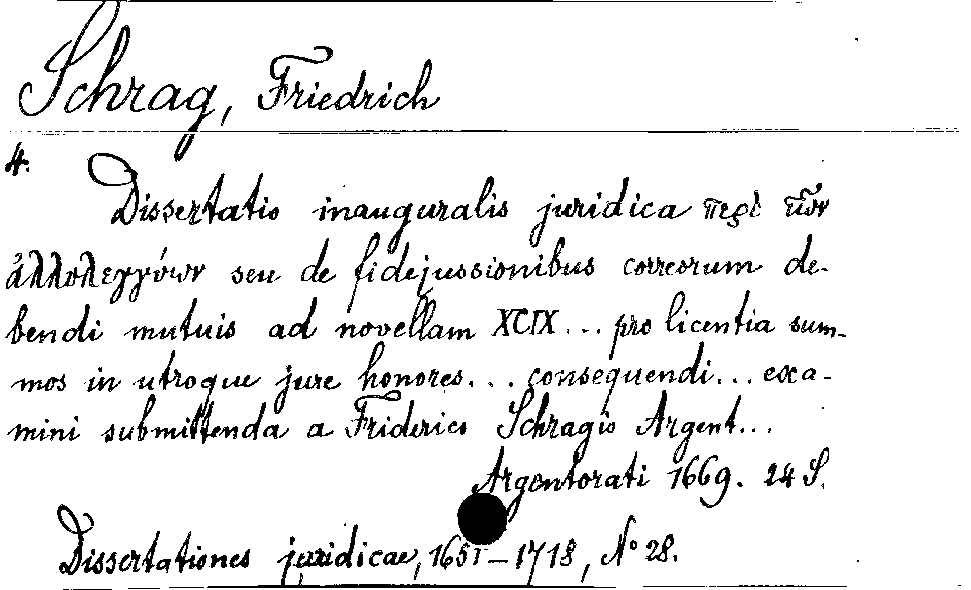 Schrag, Friedrich
4.
Dissertatio inauguralis juridica περὶ τῶν
ἀλλολεγγύων seu de fidejussionibus correorum de-
bendi mutuis ad novellam XCIX... pro licentia sum-
mos in utroque jure honores... consequendi... exa-
mini submittenda a Friderico Schragio Argent...
Argentorati 1669. 24 S.
Dissertationes juridicae, 1651-1718, No 28.